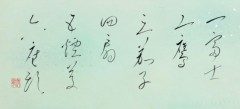 一富士
二鷹
三茄子
四扇
五煙草
六座頭